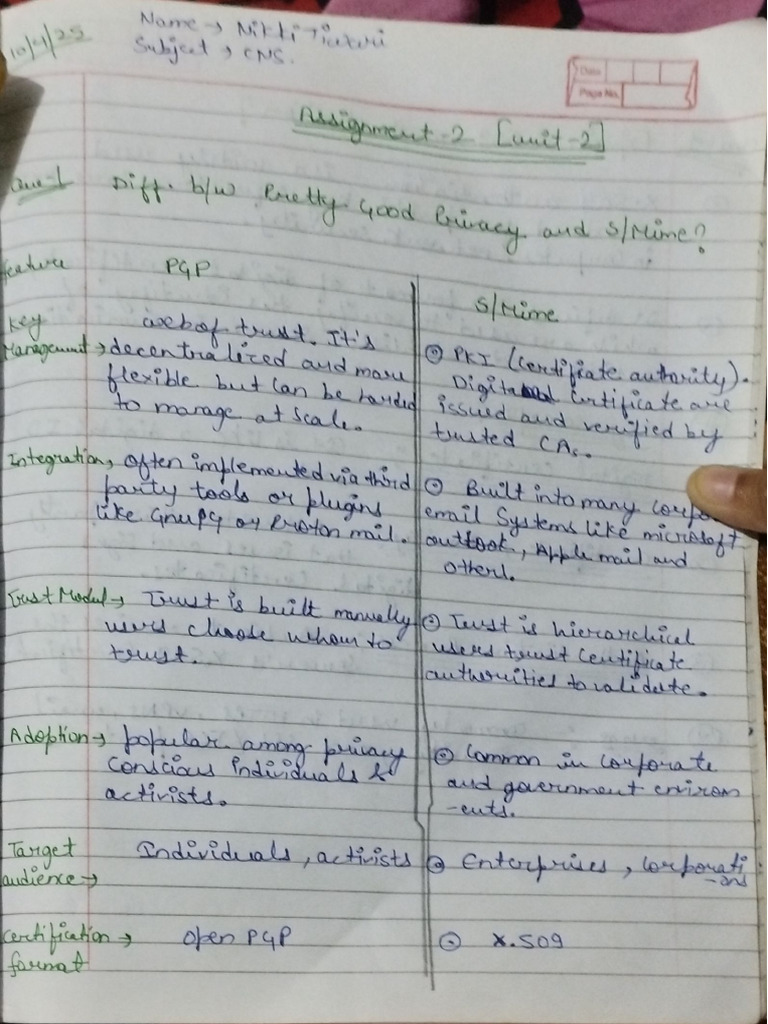 10/4/25
Name → Nikki Tiwari
Subject → CNS.
Date
Page No.
Assignment-2 [unit-2]
Que-1 Diff. b/w Pretty Good Privacy and S/Mime?
feature PGP S/Mime
Key Management → web of trust. It's
decentralized and more
flexible but can be harder
to manage at scale.
⊙ PKI (Certificate authority).
Digital Certificate are
issued and verified by
trusted CAs.
Integration → Often implemented via third
party tools or plugins
like GnuPG or Proton mail.
⊙ Built into many corpo
email Systems like microsoft
outlook, Apple mail and
others.
Trust Model → Trust is built manually
users choose whom to
trust.
⊙ Trust is hierarchical
users trust certificate
authorities to validate.
Adoption → popular among privacy
conscious individuals &
activists.
⊙ Common in corporate
and government environ
-ents.
Target audience → Individuals, activists
⊙ Enterprises, corporati
-ons
Certification format → open PGP
⊙ X.509